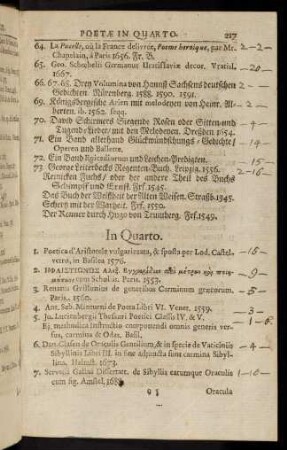 POETÆ IN QUARTO. 217
64. La Pucelle, où la France delivrée, Poeme heroique, par Mr. 2 - 2 -
Chapelain, à Paris 1656. Fr. B.
65. Geo. Schobelii Germanus Vratislaviæ decor. Vratisl.
1667.
66. 67. 68. Drey Volumina von Hannß Sachsens deutschen
Gedichten. Nürenberg. 1588. 1590. 1591.
69. Königsbergische Arien mit melodeyen von Heinr. Al-
berten. ib. 1562. seqq.
70. David Schirmers Singende Rosen oder Sitten-und
Tugend-Lieder, mit den Melodeyen. Dreßden 1654.
71. Ein Band allerhand Glückwünschungs- Gedichte,
Operen und Balletten.
72. Ein Band Epicediorum und Leichen-Predigten.
73. George Leierbecks Regenten-Buch. Leipzig. 1556.
Reinicken Fuchs/ oder der andere Theil des Buchs
Schimpff und Ernst. Frf. 1545.
Das Buch der Weißheit der Alten Weisen. Straßb. 1545.
Schertz mit der Warheit. Frf. 1550.
Der Renner durch Hugo von Trimberg. Frf. 1549.
In Quarto.
1. Poetica d'Aristotele vulgarizata, & sposta per Lod. Castel- - 15 -
vetro, in Basilea 1576.
2. ΗΦΑΙΣΤΙΩΝΟΣ Αλεξ. Εγχειρίδιον περὶ μέτρων καὶ ποιη- - 9 -
μάτων cum Scholiis. Paris. 1553.
3. Renatus Guillonius de generibus Carminum græcorum.
Paris. 1560.
4. Ant. Seb. Minturni de Poeta Libri VI. Venet. 1559.
5. Jo. Buchlerbergii Thesauri Poetici Classis IV. & V.
Ej. methodica Instructio componendi omnis generis ver-
sus, carmina & Odas. Basil.
6. Dan. Clasen de Oraculis Gentilium, & in specie de Vaticiniis - 4 -
Sibyllinis Libri III. in fine adjuncta sunt carmina Sibyl-
lina. Helmst. 1673.
7. Servatii Gallæi Dissertatt. de Sibyllis earumque Oraculis
cum fig. Amstel. 168
Oracula